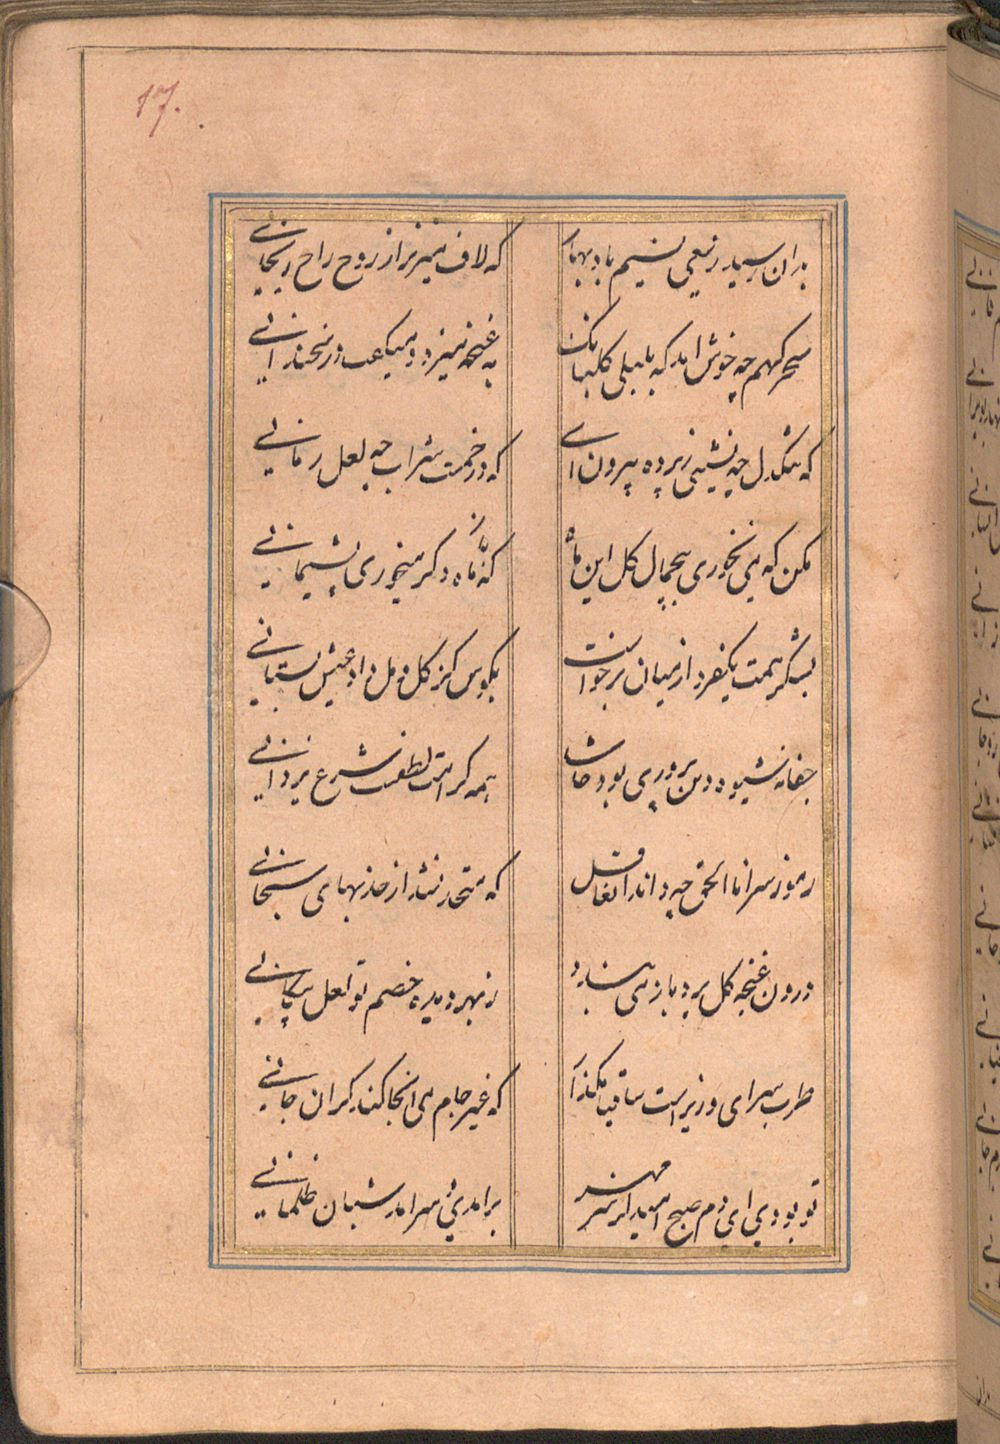 17.
بدان رسید ز سعی نسیم باد بهار
که لاف میزند از روح راح ریحانی
سحر کهم چه خوش امد که بلبلی کلبانک
به غنچه میزد و میکفت در سخندانی
که تنکدل چه نشینی ز پرده بیرون ای
که در خمست شراب چو لعل رمانی
مکن که می نخوری بجمال کل این ماه
که باز ماه دکر میخوری پشیمانی
بشکر تهمت تکفیر از میان برخواست
بکوش کز کل و مل داد عیش بستانی
جفا نه شیوه دین پروری بود حاشا
همه کرامت لطفست شرع یزدانی
رموز سر انا الحق چه داند ان غافل
که متحد نشد از جذبهای سبحانی
درون غنچه کل برد باز می سازد
ز بهر دیده خصم تو لعل پیکانی
طرب سرای وزیر است ساقیا مکذار
که غیر جام می انجا کند کران جانی
تو بودی ای دم صبح امید کز سر مهر
برامدی و سر امد شبان ظلمانی